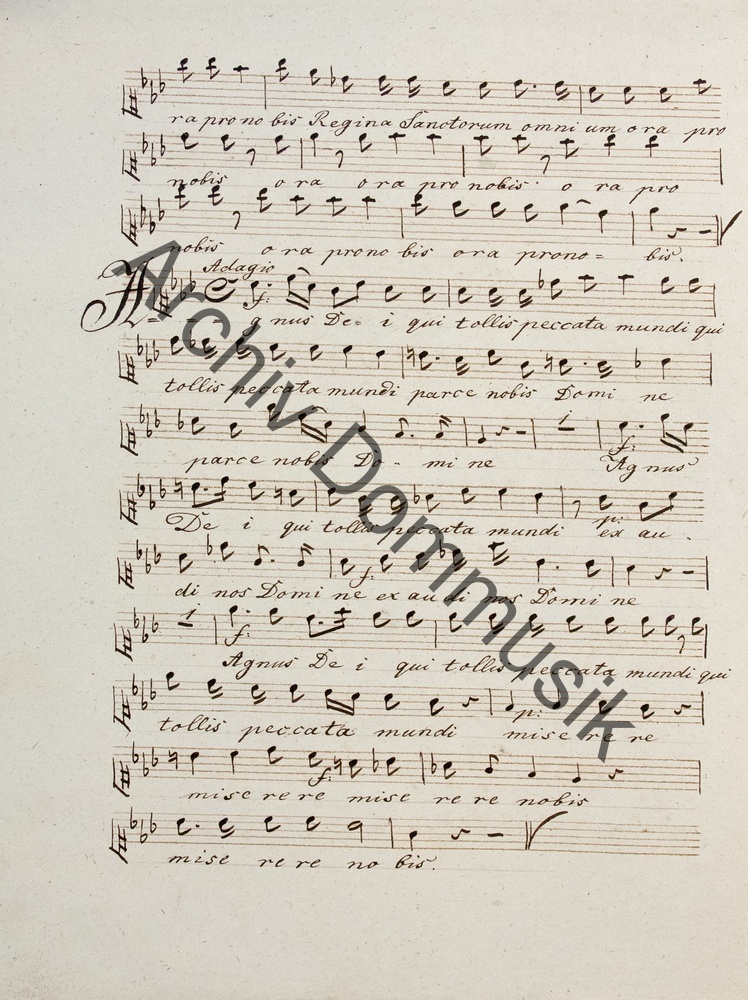 ra pro no bis Regina Sanctorum omni um o ra pro
nobis o ra o ra pro nobis o ra pro
nobis o ra prono bis ora prono= bis.
Adagio
f:
A= - - gnus De= i qui tollis peccata mundi qui
tollis peccata mundi parce nobis Domi ne
f:
parce nobis Do - mi ne Agnus
p:
De i qui tollis peccata mundi ex au -
f:
di nos Domi ne ex au di nos Domi ne
f:
Agnus De i qui tollis peccata mundi qui
p:
tollis peccata mundi mise re re
f:
mise re re mise re re nobis
mise re re no bis.
Archiv Dommusik